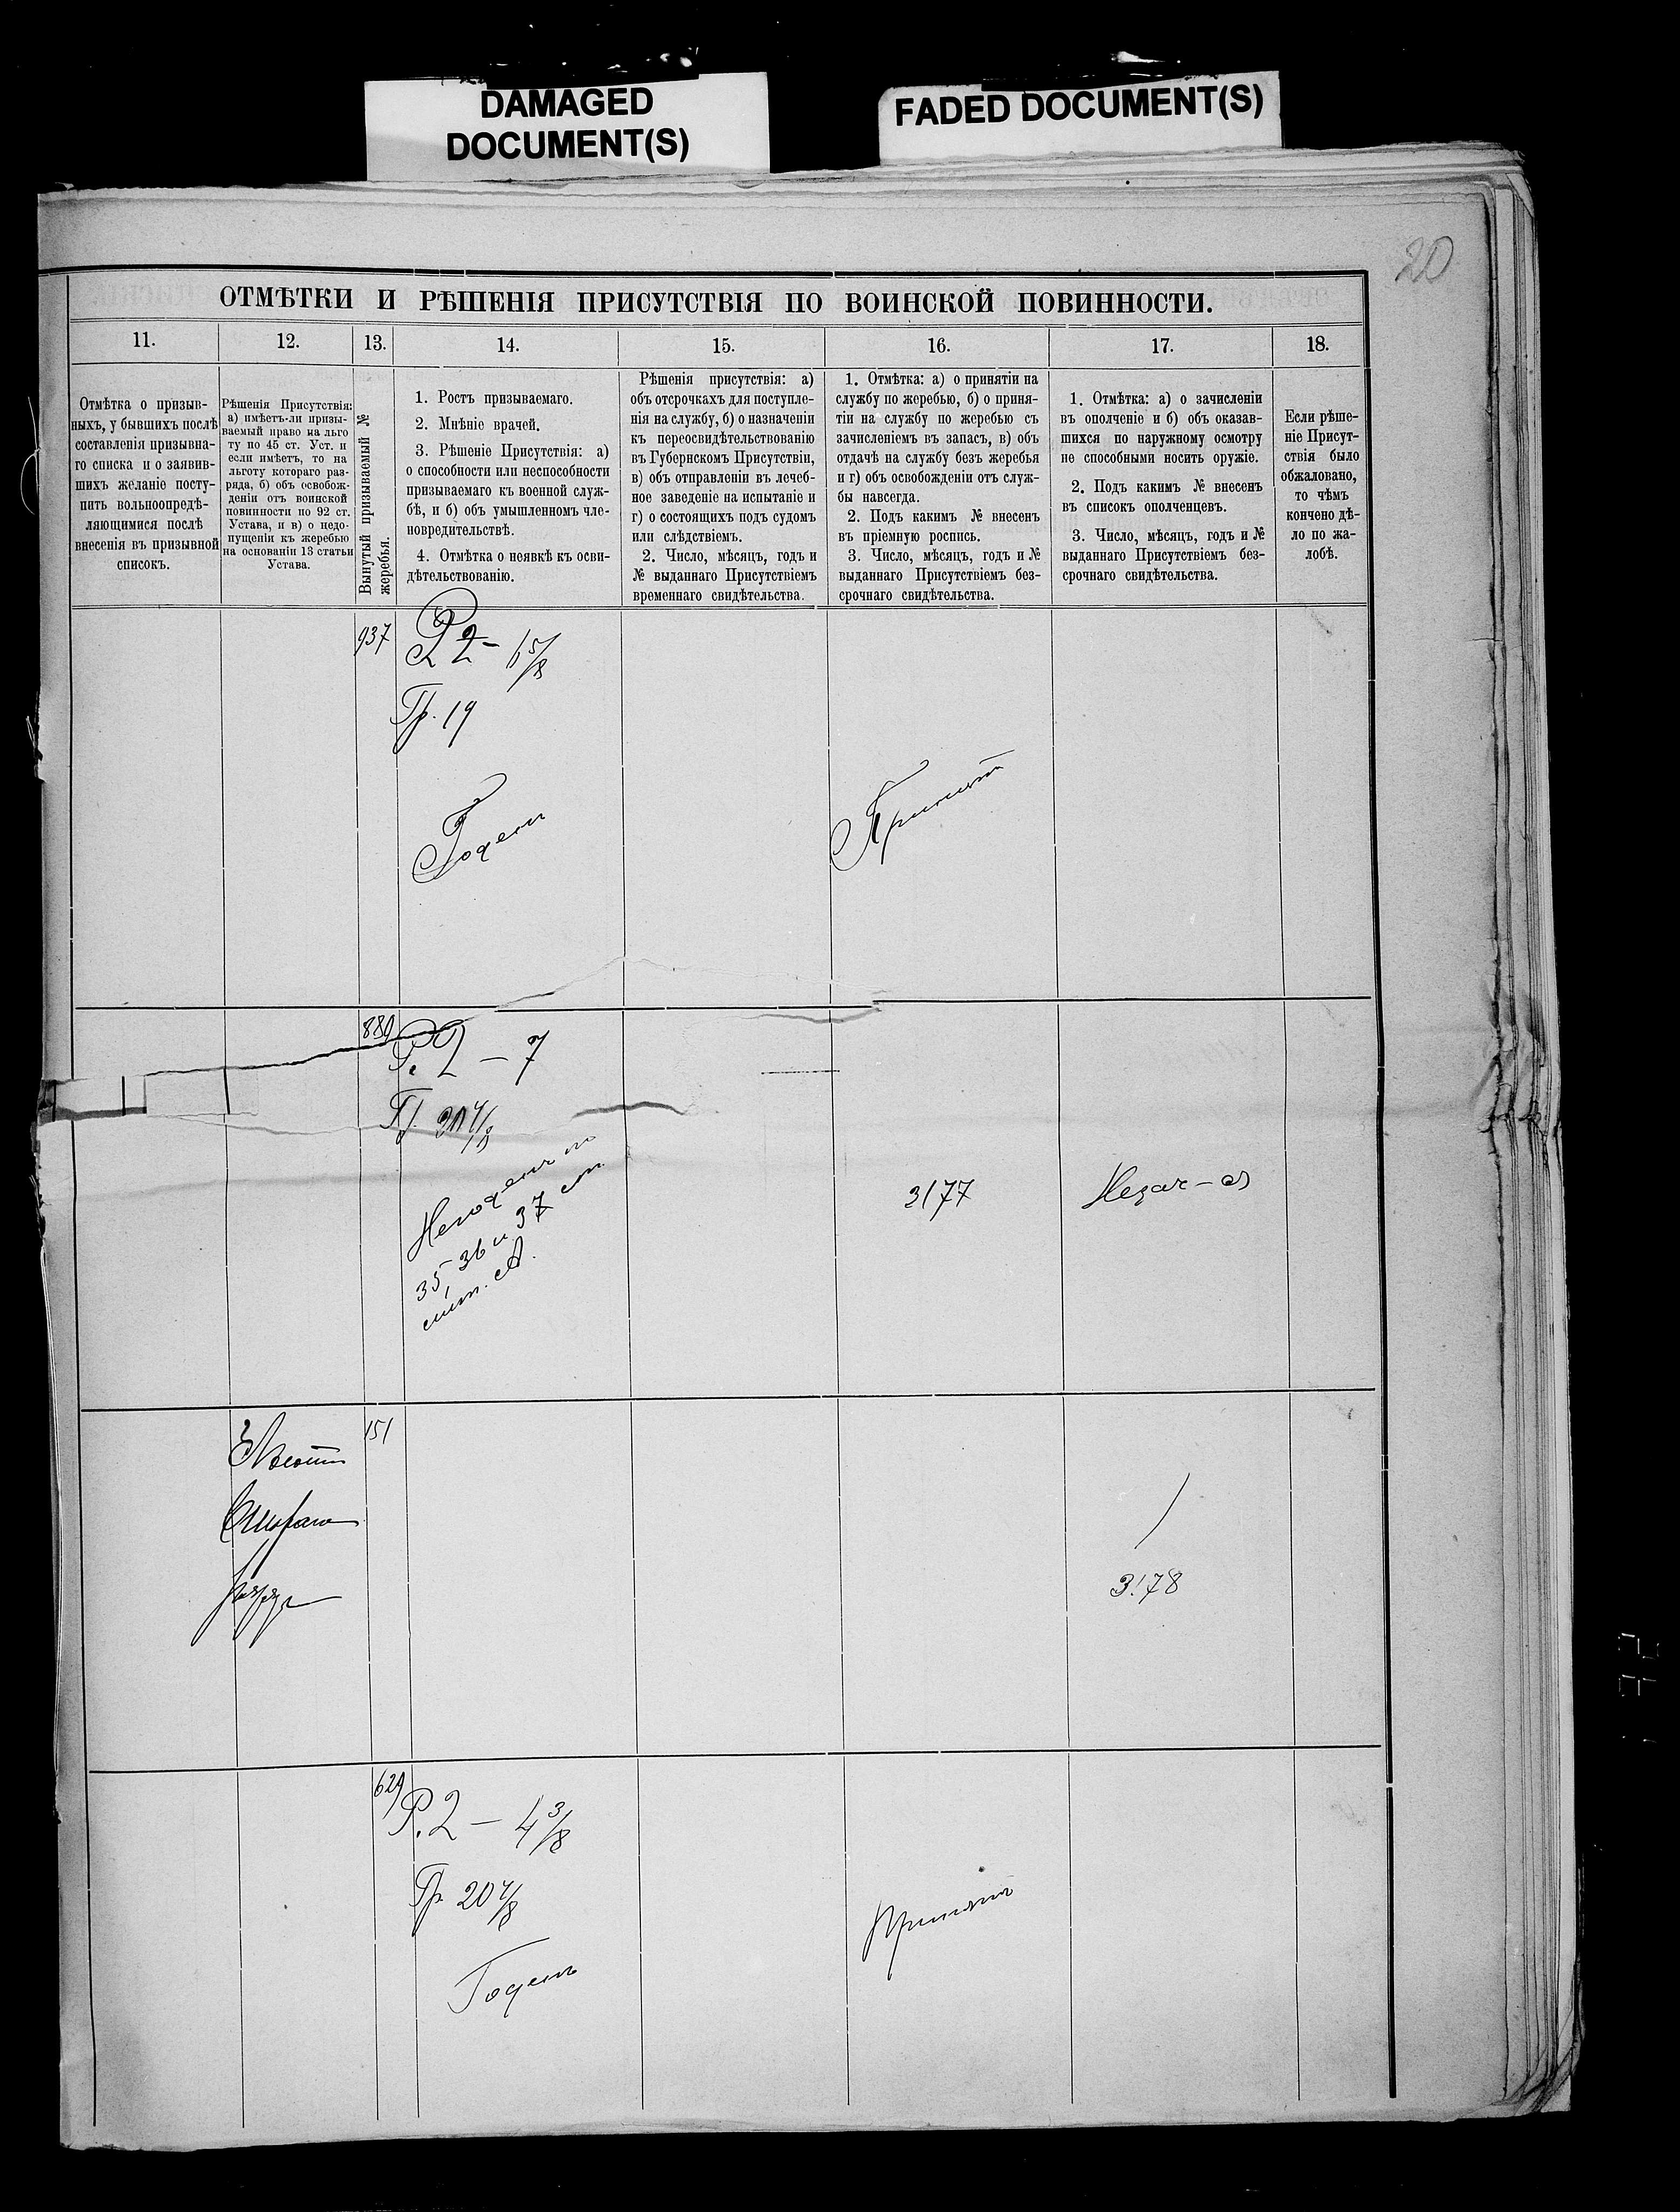 DAMAGED
DOCUMENT(S)
FADED DOCUMENT(S)
20
ОТМѢТКИ И РѢШЕНІЯ ПРИСУТСТВІЯ ПО ВОИНСКОЙ ПОВИННОСТИ.
11.
12.
13.
14.
15.
16.
17.
18.
Отмѣтка о призыв-
ныхъ, у бывшихъ послѣ
составленія призывна-
го списка и о заявив-
шихъ желаніе посту-
пить вольноопредѣ-
ляющимися послѣ
внесенія въ призывной
списокъ.
Рѣшенія Присутствія:
а) имѣетъ-ли призы-
ваемый право на льго
ту по 45 ст. Уст. и
если имѣетъ, то на
льготу котораго раз-
ряда, б) объ освобож-
деніи отъ воинской
повинности по 92 ст.
Устава, и в) о недо-
пущеніи къ жеребью
на основаніи 13 статьи
Устава.
Вынутый призываемый №
жеребья.
1. Ростъ призываемаго.
2. Мнѣніе врачей.
3. Рѣшеніе Присутствія: а)
о способности или неспособности
призываемаго къ военной служ-
бѣ, и б) объ умышленномъ чле-
новредительствѣ.
4. Отмѣтка о неявкѣ къ осви-
дѣтельствованію.
Рѣшенія присутствія: а)
объ отсрочкахъ для поступле-
нія на службу, б) о назначеніи
къ переосвидѣтельствованію
въ Губернскомъ Присутствіи,
в) объ отправленіи въ лечеб-
ное заведеніе на испытаніе и
г) о состоящихъ подъ судомъ
или слѣдствіемъ.
2. Число, мѣсяцъ, годъ и
№ выданнаго Присутствіемъ
временнаго свидѣтельства.
1. Отмѣтка: а) о принятіи на
службу по жеребью, б) о приня-
тіи на службу по жеребью съ
зачисленіемъ въ запасъ, в) объ
отдачѣ на службу безъ жеребья
и г) объ освобожденіи отъ служ-
бы навсегда.
2. Подъ какимъ № внесенъ
въ пріемную роспись.
3. Число, мѣсяцъ, годъ и №
выданнаго Присутствіемъ без-
срочнаго свидѣтельства.
1. Отмѣтка: а) о зачисленіи
въ ополченіе и б) объ оказав-
шихся по наружному осмотру
не способными носить оружіе.
2. Подъ какимъ № внесенъ
въ списокъ ополченцевъ.
3. Число, мѣсяцъ, годъ и №
выданнаго Присутствіемъ без-
срочнаго свидѣтельства.
Если рѣше-
ніе Присут-
ствія было
обжаловано,
то чѣмъ
кончено дѣ-
ло по жа-
лобѣ.
937
Р 2 – 6 5/8
Гр. 19
Годенъ
Принятъ
880
Р. 2 – 7
Гр. 20 4/8
Негоденъ по
35, 36 и 37 ст
лит. А.
3177
151
Льгота
второго
разряда
3178
629
Р. 2 – 4 3/8
Гр. 20 4/8
Годенъ
Принятъ